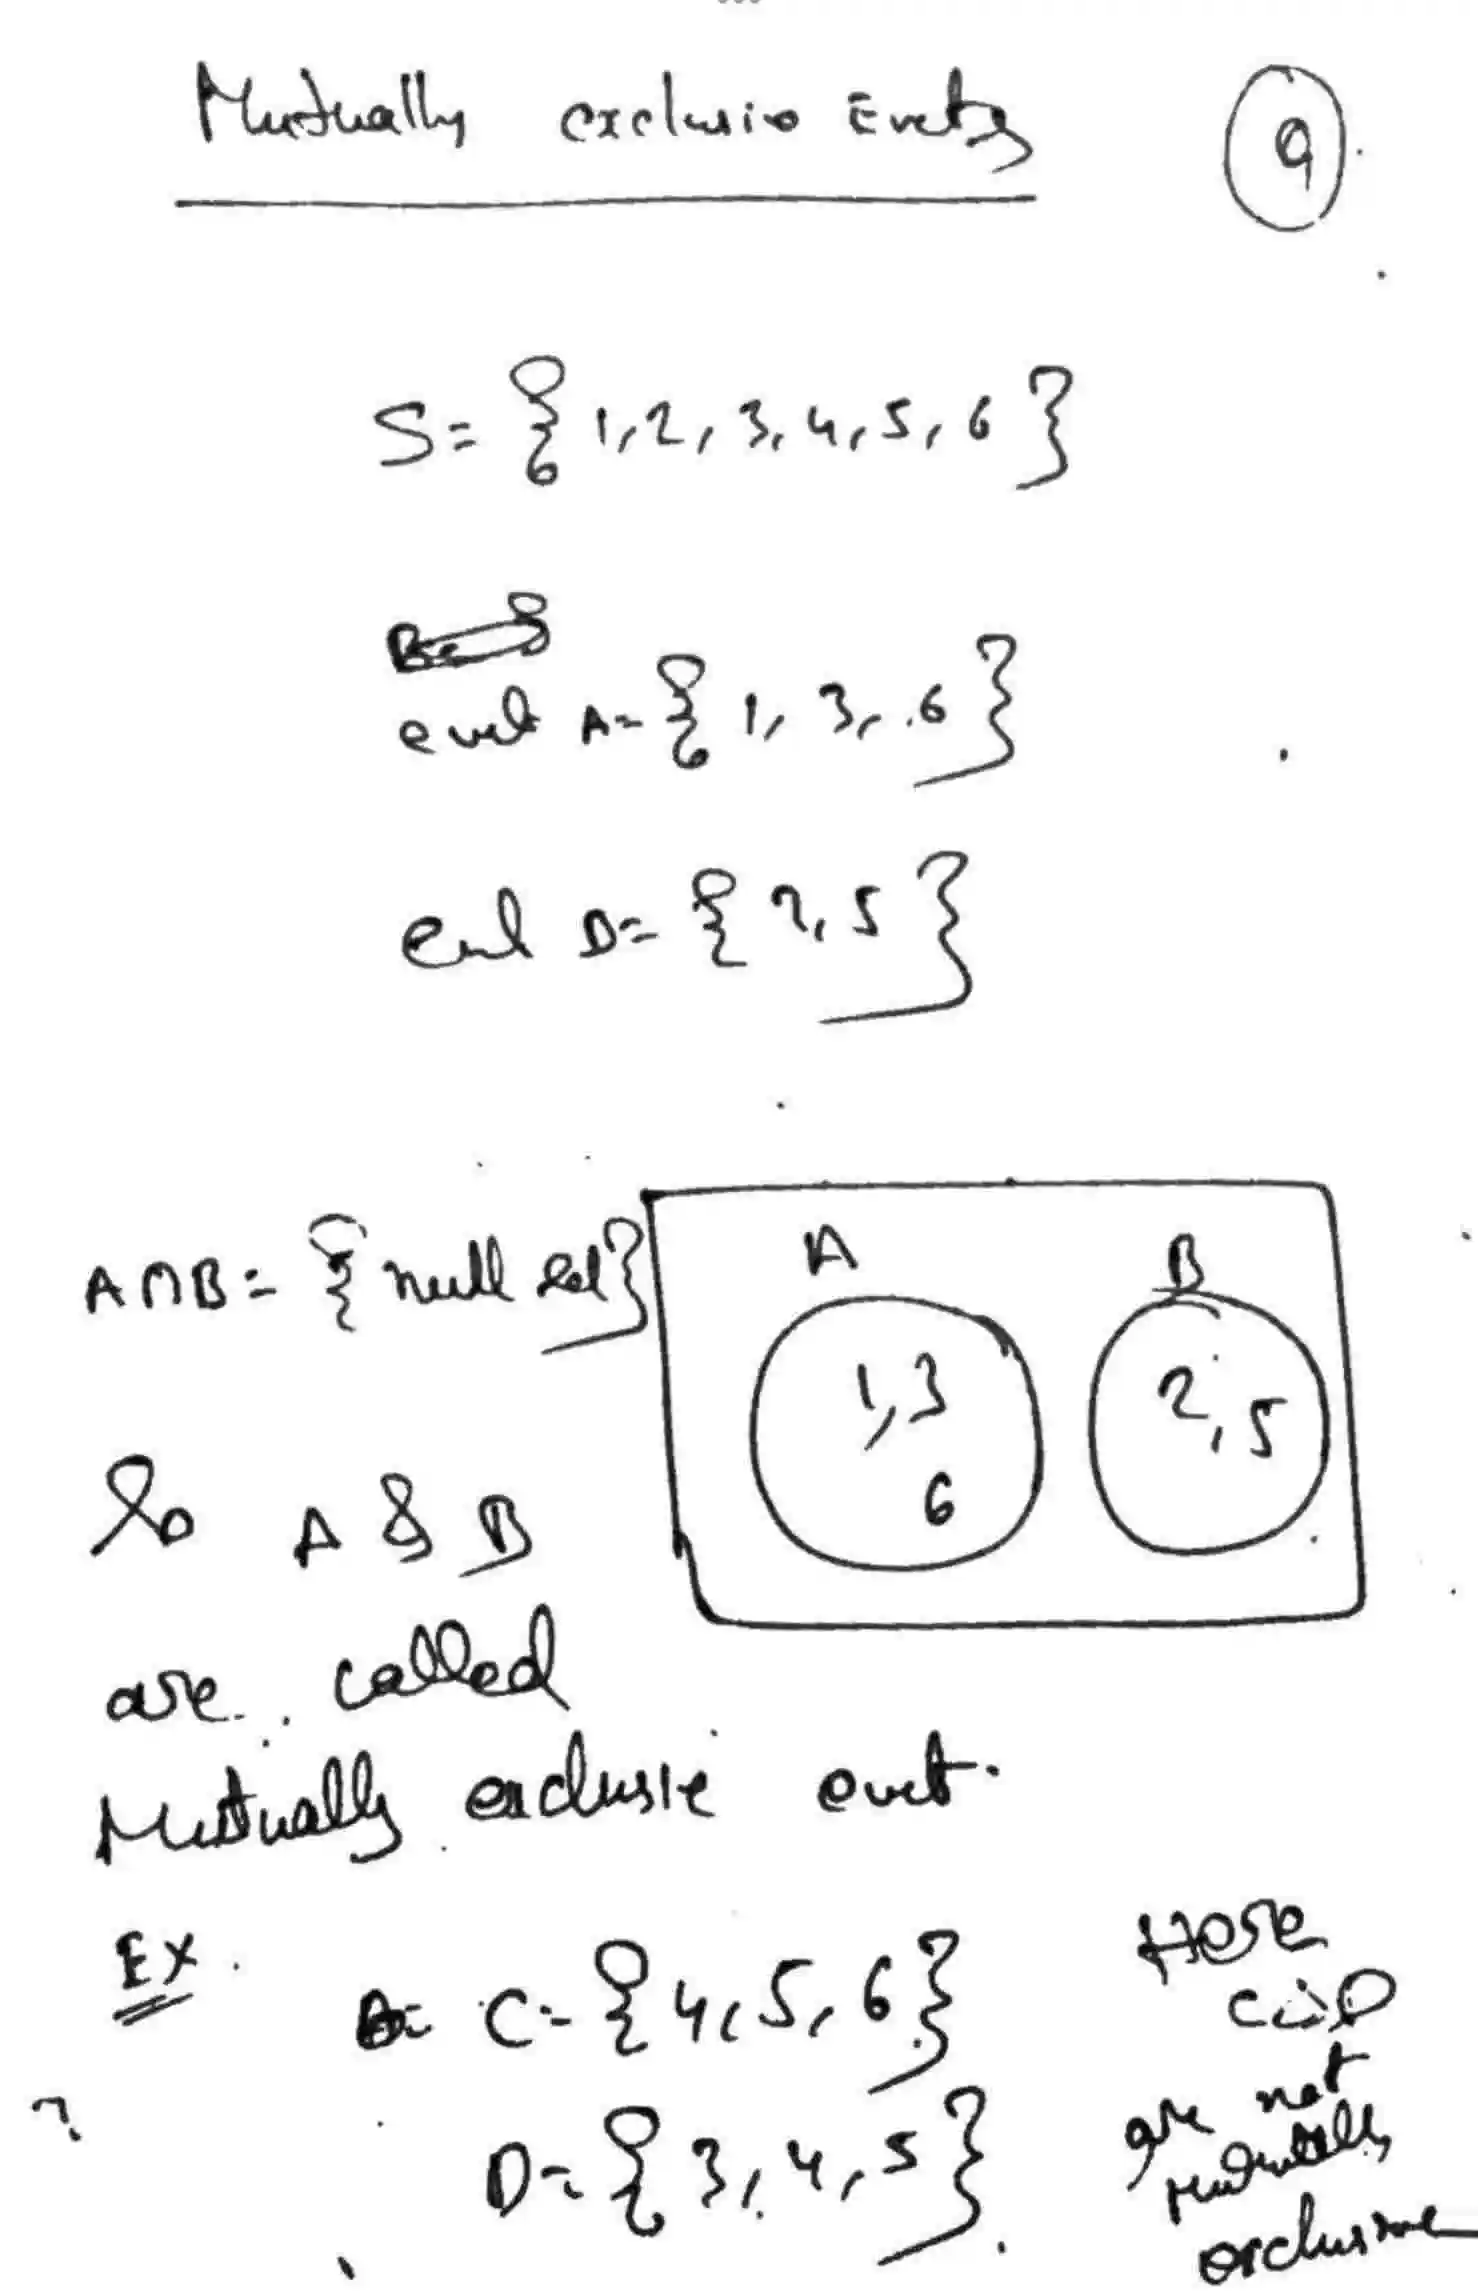 Mutually exclusive Events 9
S = { 1, 2, 3, 4, 5, 6 }
event A = { 1, 3, 6 }
event B = { 2, 5 }
A ∩ B = { null set }
A B
1, 3 2, 5
6
So A & B
are called
Mutually exclusive event.
Ex. C = { 4, 5, 6 }
D = { 3, 4, 5 }
Here
C & D
are not
Mutually
exclusive